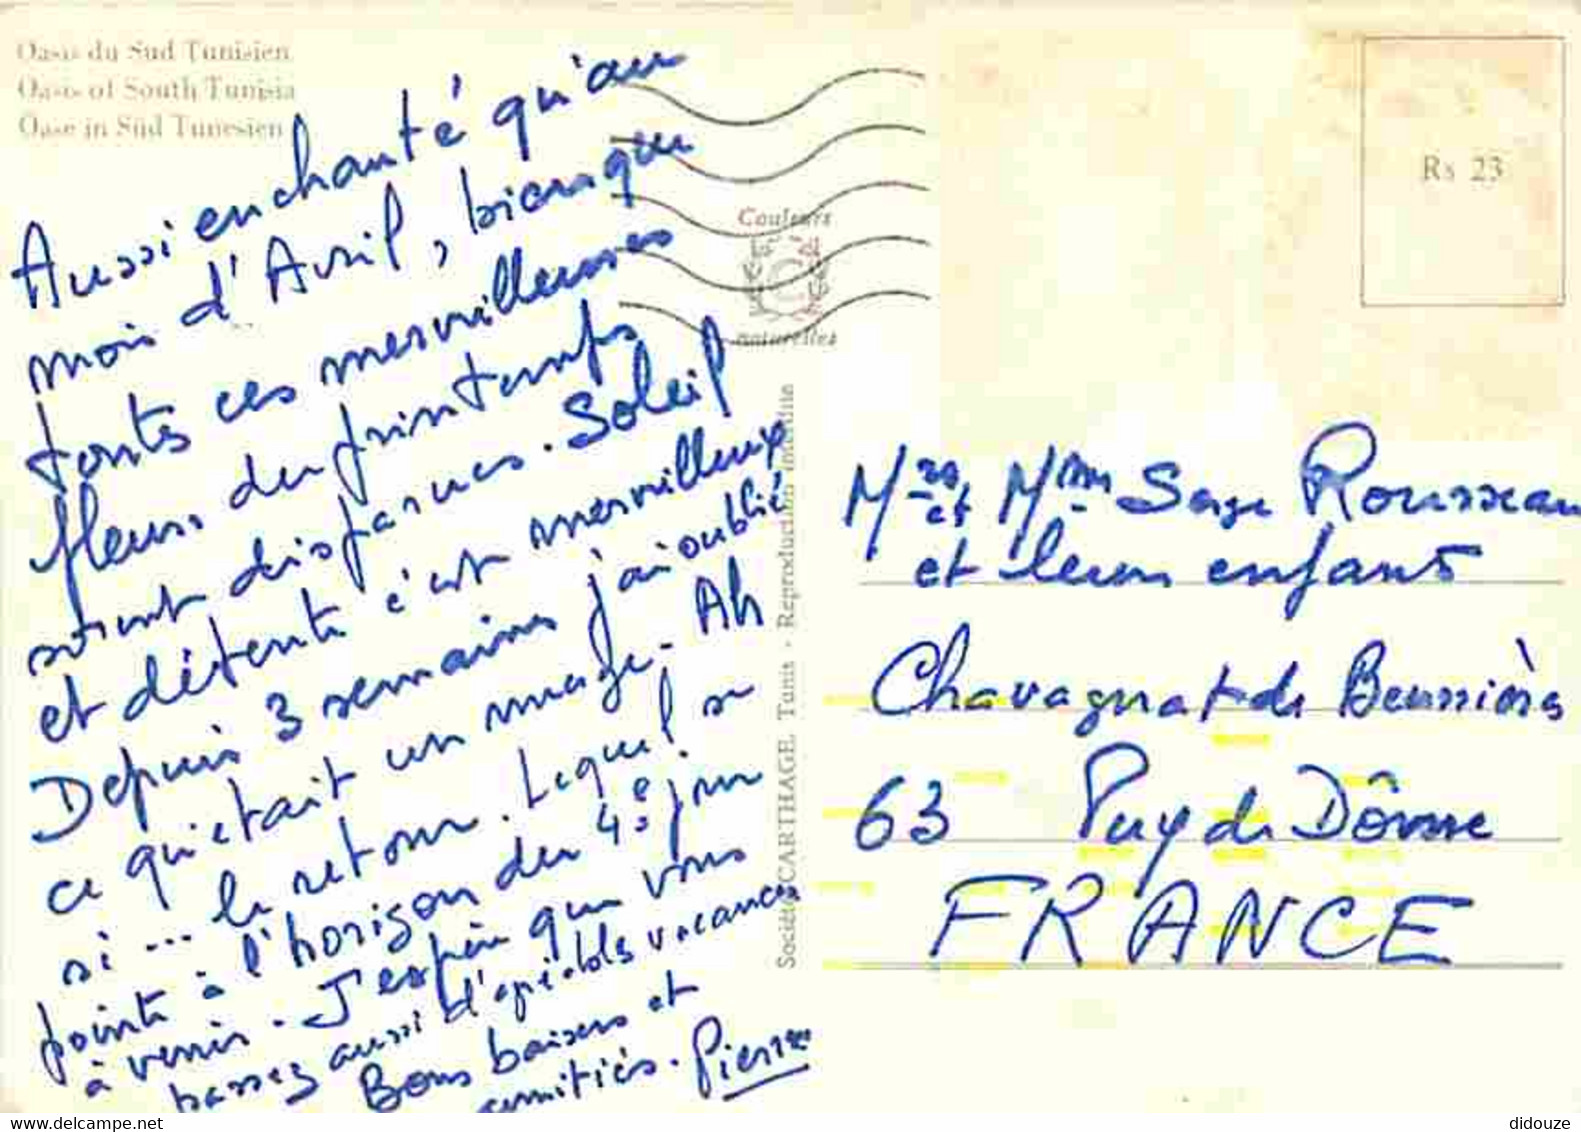 Oasis du Sud Tunisien
Oasis of South Tunisia
Oase in Süd Tunesien
Aussi enchanté qu'au
mois d'Avril, bien que
toutes ces merveilleuses
fleurs du printemps
soient disparues. Soleil
et détente c'est merveilleux
Depuis 3 semaines j'ai oublié
ce qu'était un nuage. Ah
si ... le retour. Lequel se
pointe à l'horizon du 4e jour
à venir. J'espère que vous
passez aussi d'agréables vacances
Bons baisers et
amitiés. Pierre
Couleurs
C
naturelles
Société CARTHAGE, Tunis - Reproduction interdite
Rs 23
Mrs et Mme Serge Rousseau
et leurs enfants
Chavagnat de Beurrières
63 Puy de Dôme
FRANCE
didouze